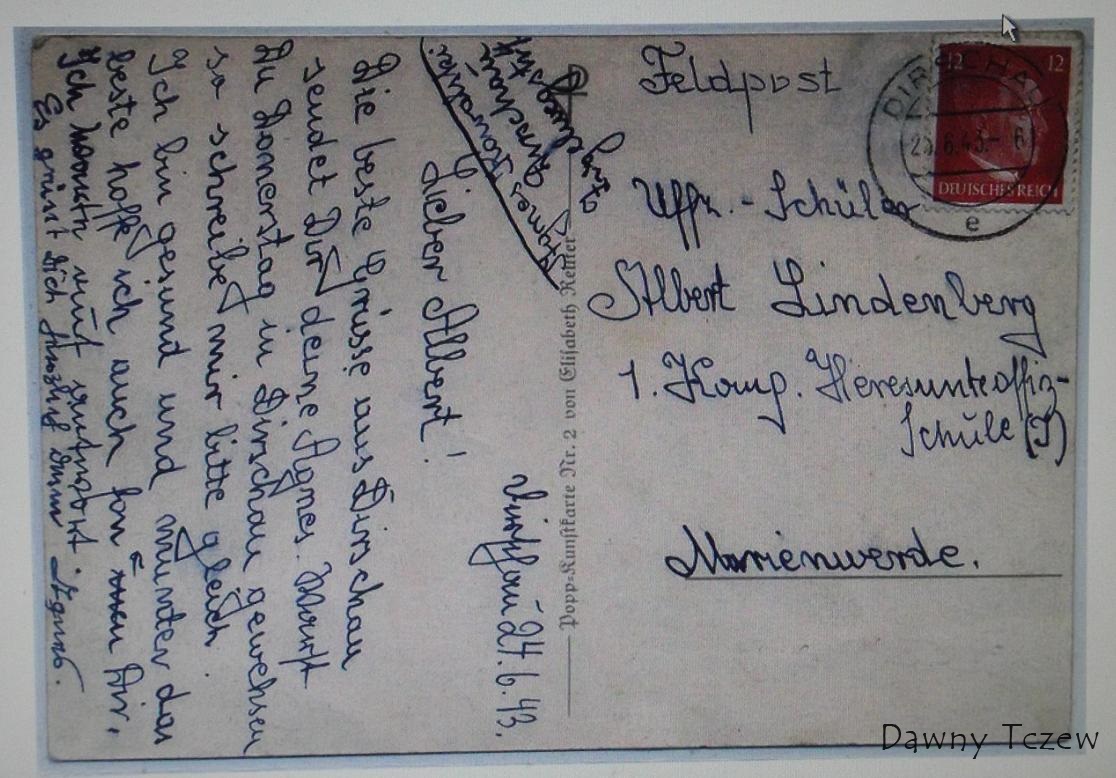 Feldpost
DIRSCHAU
12 12
25.6.43.- 6
DEUTSCHES REICH
e
Uffz. - Schüler
Albert Lindenberg
1. Komp. Heresunteoffiz-
Schule (I)
Marienwerde.
Popp=Kunstkarte Nr. 2 von Elisabeth Reuter
Agnes
Dirschau
Dirschau 24.6.43.
Lieber Albert!
Die beste Grüsse aus Dirschau
sendet Dir deine Agnes. Warst
Du Donerstag in Dirschau gewehsen
so schreibe mir bitte gleich.
Ich bin gesund und munter das
beste hoffe ich auch fon Dir.
Ich
Es grüsst Dich Agnes.
Dawny Tczew